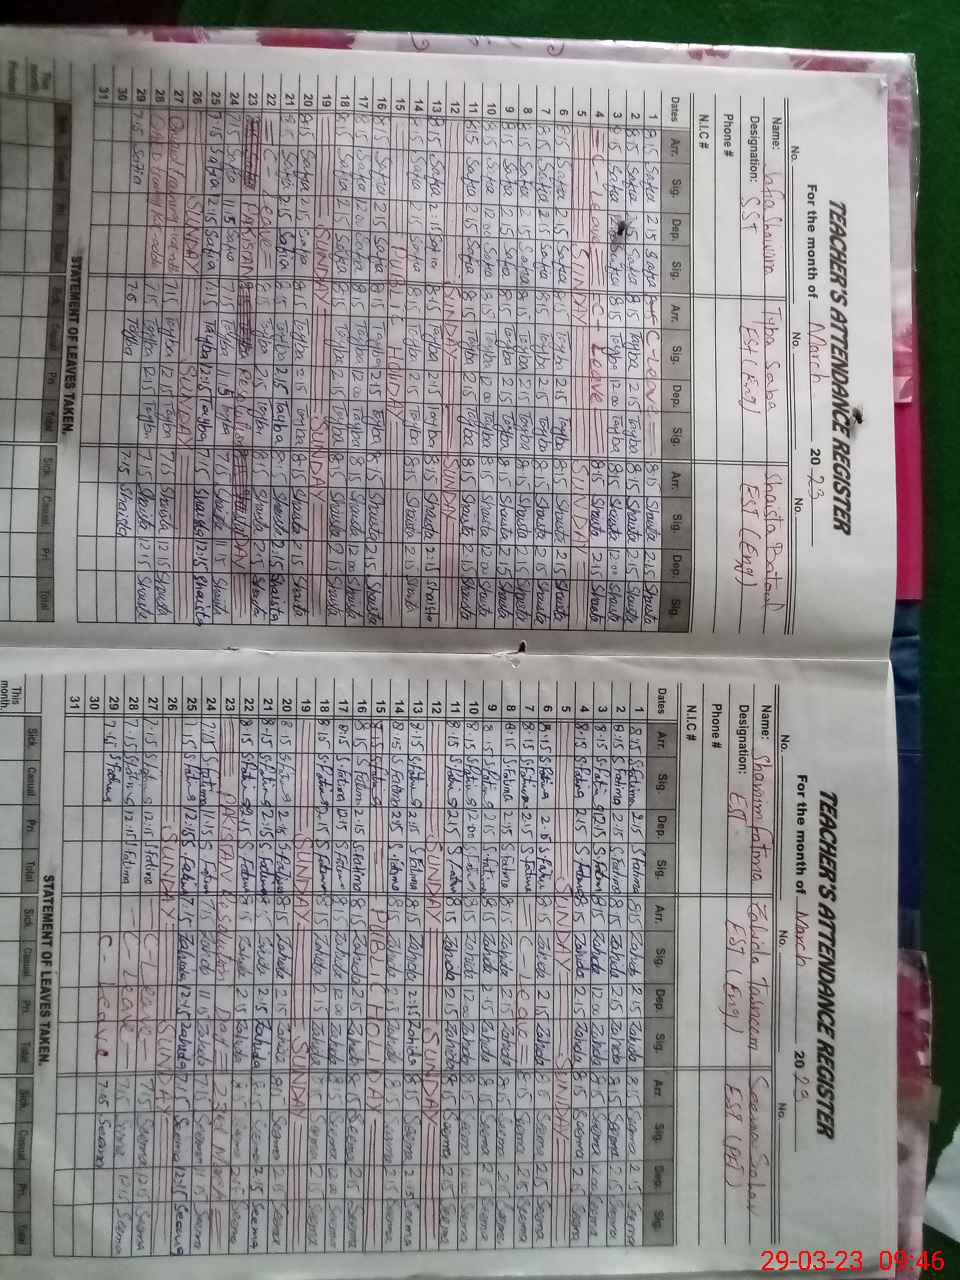 TEACHER'S ATTENDANCE REGISTER
For the month of March 2023
No. No. No.
Name: Tyba Saba Shaista Batool
Designation: SST EST (Eng) EST (Eng)
Phone #
N.I.C #
Dates Arr. Sig. Dep. Sig. Arr. Sig. Dep. Sig. Arr. Sig. Dep. Sig.
1 8:15 Safia 2:15 Safia C-Leave 8:15 Shaista 2:15 Shaista
2 8:15 Safia 2:15 Safia 8:15 Tayba 2:15 Tayba 8:15 Shaista 2:15 Shaista
3 8:15 Safia 12:00 8:15 Tayba 12:00 Tayba 8:15 Shaista 12:00 Shaista
4 C-Leave C-Leave 8:15 Shaista 2:15 Shaista
5 SUNDAY SUNDAY
6 8:15 Safia 2:15 Safia 8:15 Tayba 2:15 Tayba 8:15 Shaista 2:15 Shaista
7 8:15 Safia 2:15 Safia 8:15 Tayba 2:15 Tayba 8:15 Shaista 2:15 Shaista
8 8:15 Safia 2:15 Safia 8:15 Tayba 2:15 Tayba 8:15 Shaista 2:15 Shaista
9 8:15 Safia 2:15 Safia 8:15 Tayba 2:15 Tayba 8:15 Shaista 2:15 Shaista
10 8:15 Safia 12:00 Safia 8:15 Tayba 12:00 Tayba 8:15 Shaista 12:00 Shaista
11 8:15 Safia 2:15 Safia 8:15 Tayba 2:15 Tayba 8:15 Shaista 2:15 Shaista
12 SUNDAY SUNDAY
13 8:15 Safia 2:15 Safia 8:15 Tayba 2:15 Tayba 8:15 Shaista 2:15 Shaista
14 8:15 Safia 2:15 Safia 8:15 Tayba 2:15 Tayba 8:15 Shaista 2:15 Shaista
15 PUBLIC HOLIDAY
16 8:15 Safia 2:15 Safia 8:15 Tayba 2:15 Tayba 8:15 Shaista 2:15 Shaista
17 8:15 Safia 12:00 Safia 8:15 Tayba 12:00 Tayba 8:15 Shaista 12:00 Shaista
18 8:15 Safia 2:15 Safia 8:15 Tayba 2:15 Tayba 8:15 Shaista 2:15 Shaista
19 SUNDAY SUNDAY
20 8:15 Safia 2:15 Safia 8:15 Tayba 2:15 Tayba 8:15 Shaista 2:15 Shaista
21 8:15 Safia 2:15 Safia 8:15 Tayba 2:15 Tayba 8:15 Shaista 2:15 Shaista
22 C-Leave Tayba 2:15 Tayba 8:15 Shaista 2:15 Shaista
23 PAKISTAN DAY
24 7:15 Safia 11:15 Safia 7:15 Tayba 11:15 Tayba 7:15 Shaista 11:15 Shaista
25 7:15 Safia 12:15 Safia 7:15 Tayba 12:15 Tayba 7:15 Shaista 12:15 Shaista
26 SUNDAY SUNDAY
27 7:15 Tayba 12:15 Tayba 7:15 Shaista 12:15 Shaista
28 7:15 Tayba 12:15 Tayba 7:15 Shaista 12:15 Shaista
29 7:15 Safia 7:15 Tayba 7:15 Shaista
30
31
STATEMENT OF LEAVES TAKEN.
This month Sick. Casual Pri. Total Sick. Casual Pri. Total Sick. Casual Pri. Total
TEACHER'S ATTENDANCE REGISTER
For the month of March 2023
No. No. No.
Name: Shamim Fatima Zahida Tabassum Seema
Designation: EST EST (Eng) EST
Phone #
N.I.C #
Dates Arr. Sig. Dep. Sig. Arr. Sig. Dep. Sig. Arr. Sig. Dep. Sig.
1 8:15 S Fatima 2:15 S Fatima 8:15 Zahida 2:15 Zahida 8:15 Seema 2:15 Seema
2 8:15 S Fatima 2:15 S Fatima 8:15 Zahida 2:15 Zahida 8:15 Seema 2:15 Seema
3 8:15 S Fatima 12:15 S Fatima 8:15 Zahida 12:00 Zahida 8:15 Seema 12:00 Seema
4 8:15 S Fatima 2:15 S Fatima 8:15 Zahida 2:15 Zahida 8:15 Seema 2:15 Seema
5 SUNDAY SUNDAY
6 8:15 S Fatima 2:15 S Fatima 8:15 Zahida 2:15 Zahida 8:15 Seema 2:15 Seema
7 8:15 S Fatima 2:15 S Fatima C-Leave 8:15 Seema 2:15 Seema
8 8:15 S Fatima 2:15 S Fatima 8:15 Zahida 2:15 Zahida 8:15 Seema 2:15 Seema
9 8:15 S Fatima 2:15 S Fatima 8:15 Zahida 2:15 Zahida 8:15 Seema 2:15 Seema
10 8:15 S Fatima 12:00 S Fatima 8:15 Zahida 12:00 Zahida 8:15 Seema 12:00 Seema
11 8:15 S Fatima 2:15 S Fatima 8:15 Zahida 2:15 Zahida 8:15 Seema 2:15 Seema
12 SUNDAY SUNDAY
13 8:15 S Fatima 2:15 S Fatima 8:15 Zahida 2:15 Zahida 8:15 Seema 2:15 Seema
14 8:15 S Fatima 2:15 S Fatima 8:15 Zahida 2:15 Zahida 8:15 Seema 2:15 Seema
15 PUBLIC HOLIDAY
16 8:15 S Fatima 2:15 S Fatima 8:15 Zahida 2:15 Zahida 8:15 Seema 2:15 Seema
17 8:15 S Fatima 12:15 S Fatima 8:15 Zahida 12:00 Zahida 8:15 Seema 12:00 Seema
18 8:15 S Fatima 2:15 S Fatima 8:15 Zahida 2:15 Zahida 8:15 Seema 2:15 Seema
19 SUNDAY SUNDAY
20 8:15 S Fatima 2:15 S Fatima 8:15 Zahida 2:15 Zahida 8:15 Seema 2:15 Seema
21 8:15 S Fatima 2:15 S Fatima Zahida 2:15 Zahida 8:15 Seema 2:15 Seema
22 8:15 S Fatima 2:15 S Fatima 8:15 Zahida 2:15 Zahida 8:15 Seema 2:15 Seema
23 PAKISTAN Resolution Day 23rd March
24 7:15 S Fatima 11:15 S Fatima 7:15 Zahida 11:15 Zahida 7:15 Seema 11:15 Seema
25 7:15 S Fatima 12:15 S Fatima 7:15 Zahida 12:15 Zahida 7:15 Seema 12:15 Seema
26 SUNDAY SUNDAY
27 7:15 S Fatima 12:15 S Fatima C-Leave 7:15 Seema 12:15 Seema
28 7:15 S Fatima 12:15 S Fatima C-Leave 7:15 Seema 12:15 Seema
29 7:15 S Fatima C-Leave 7:05 Seema
30
31
STATEMENT OF LEAVES TAKEN.
This month. Sick. Casual Pri. Total Sick. Casual Pri. Total Sick. Casual Pri. Total
29-03-23 09:46